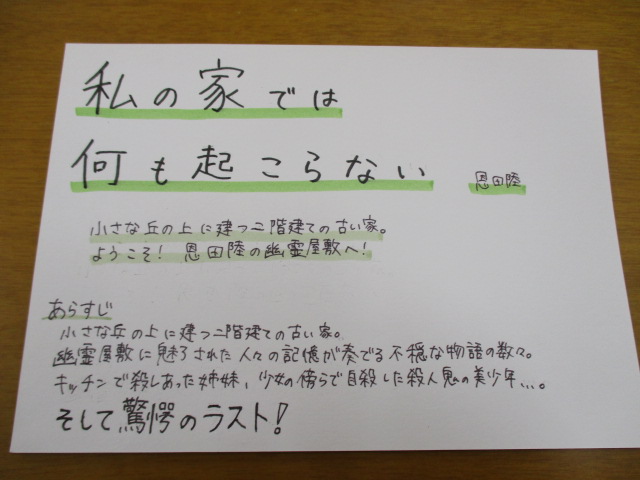 私の家では
何も起こらない
恩田陸
小さな丘の上に建つ二階建ての古い家。
ようこそ! 恩田陸の幽霊屋敷へ!
あらすじ
小さな丘の上に建つ二階建ての古い家。
幽霊屋敷に魅了された人々の記憶が奏でる不穏な物語の数々。
キッチンで殺しあった姉妹、少女の傍らで自殺した殺人鬼の美少年…。
そして驚愕のラスト!